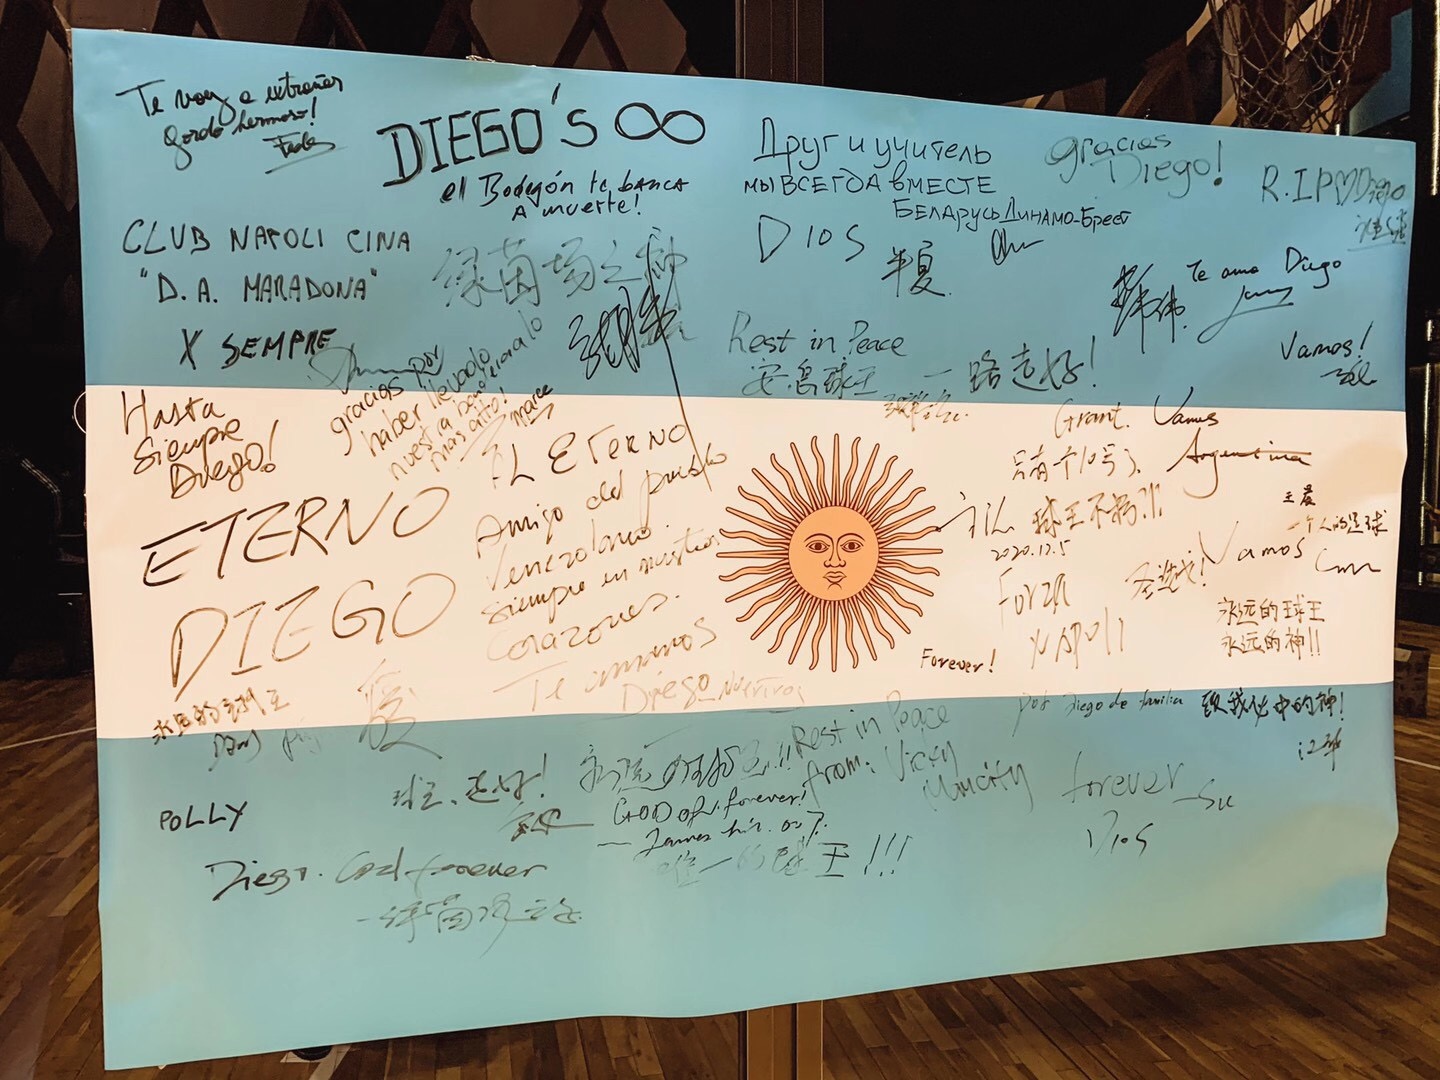 Te voy a extrañar
Gordo hermoso!
DIEGO'S ∞
el Bodegón te banca
A muerte!
Друг и учитель
мы ВСЕГДА вместе
Беларусь Динамо-Брест
gracias
Diego!
R.I.P♡Diego
CLUB NAPOLI CINA
"D.A. MARADONA"
X SEMPRE
绿茵场之神
Dios
半夏
Te amo Diego
Rest in Peace
安息球王 一路走好!
Vamos!
Hasta
Siempre
Diego!
gracias por
haber llevado
nuestra bandera a lo
mas alto!
ETERNO
DIEGO
EL ETERNO
Amigo del pueblo
Venezolano
siempre en nuestros
Corazones.
Te amamos
Diego
Grant. Vamos
Argentina
只有个10号了
球王不朽!!!
2020.12.5
一个人的足球
Vamos
Forza
Napoli
Forever!
永远的球王
永远的神!!
永远的球王
爱
Rest in Peace
from: Vicky
Mancity
por Diego de familia
致我心中的神!
POLLY
球王,走好!
GOD of forever!
唯一的球王!!!
forever
Dios
Diego. God forever